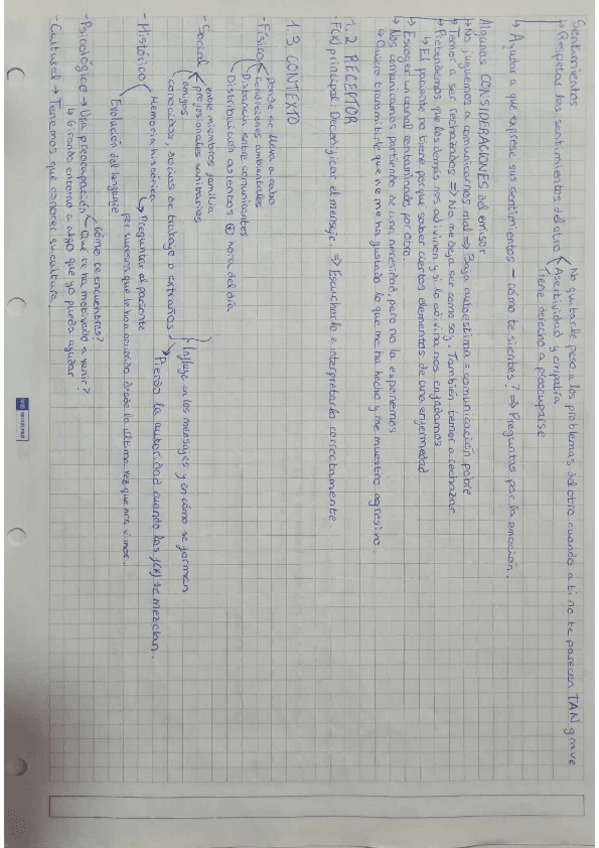 Sentimientos
↳ Respetar los sentimientos del otro
No quitarle peso a los problemas del otro cuando a ti no te parecen TAN grave
Asertividad y empatía
Tiene derecho a preocuparse
↳ Ayudar a que exprese sus sentimientos – cómo te sientes? ⇒ Preguntas por la emoción.
Algunas CONSIDERACIONES del emisor
↳ No juguemos a comunicarnos mal ⇒ Baja autoestima = comunicación pobre
↳ Temor a ser rechazados ⇒ No me deja ser como soy. También temor a rechazar
↳ Pretendemos que los demás nos adivinen y si no adivina nos enfadamos
↳ El paciente no tiene porque saber ciertos elementos de una enfermedad
↳ Escoger un canal contaminado por otro.
↳ Nos comunicamos partiendo de una necesidad, pero no la exponemos
↳ Quiero transmitirle que no me ha gustado lo que me ha hecho y me muestro agresivo.
1.2 RECEPTOR
· F(x) principal: Decodificar el mensaje ⇒ Escucharlo e interpretarlo correctamente.
1.3 CONTEXTO
- Físico
Donde se lleva a cabo
Condiciones ambientales
Distancia entre comunicantes
Distribución asientos ⊕ hora del día
- Social
entre miembros familia
profesionales sanitarios
amigos
conocidos, socios de trabajo o extraños
Influye en los mensajes y en cómo se forman
↳ Pierdo la autoridad cuando las f(x) se mezclan.
- Histórico
Memoria histórica
↳ Preguntar al paciente
por sucesos que le han ocurrido desde la última vez que nos vimos.
Evolución del lenguaje
- Psicológico → Una preocupación
Cómo te encuentras?
Qué te ha motivado a venir?
↳ Girando entorno a algo que yo pueda ayudar
- Cultural → Tenemos que conocer su cultura.